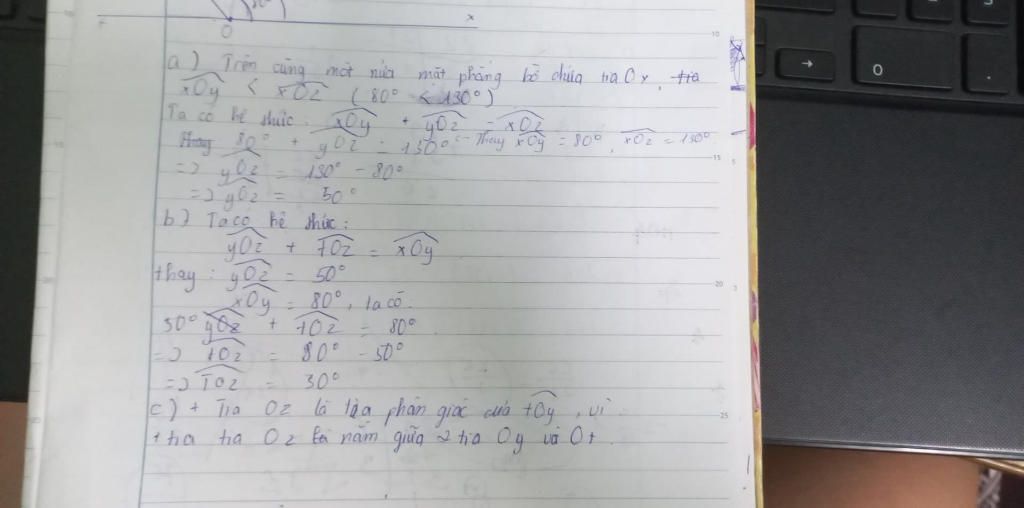 80°
x
O
a) Trên cùng một nửa mặt phẳng bờ chứa tia Ox, tia
xOy < xOz (80° < 130°)
Ta có hệ thức: xOy + yOz = xOz
Thay 80° + yOz = 130° Thay xOy = 80°, xOz = 130°
=> yOz = 130° - 80°
=> yOz = 50°
b) Ta có hệ thức:
yOz + TOz = xOy
thay: yOz = 50°
xOy = 80°, ta có:
50° yOz + TOz = 80°
=> TOz = 80° - 50°
=> TOz = 30°
c) + Tia Oz là tia phân giác của tOy, vì
+ tia tia Oz là nằm giữa 2 tia Oy và Ot.
10
15
20
25
5
3
O